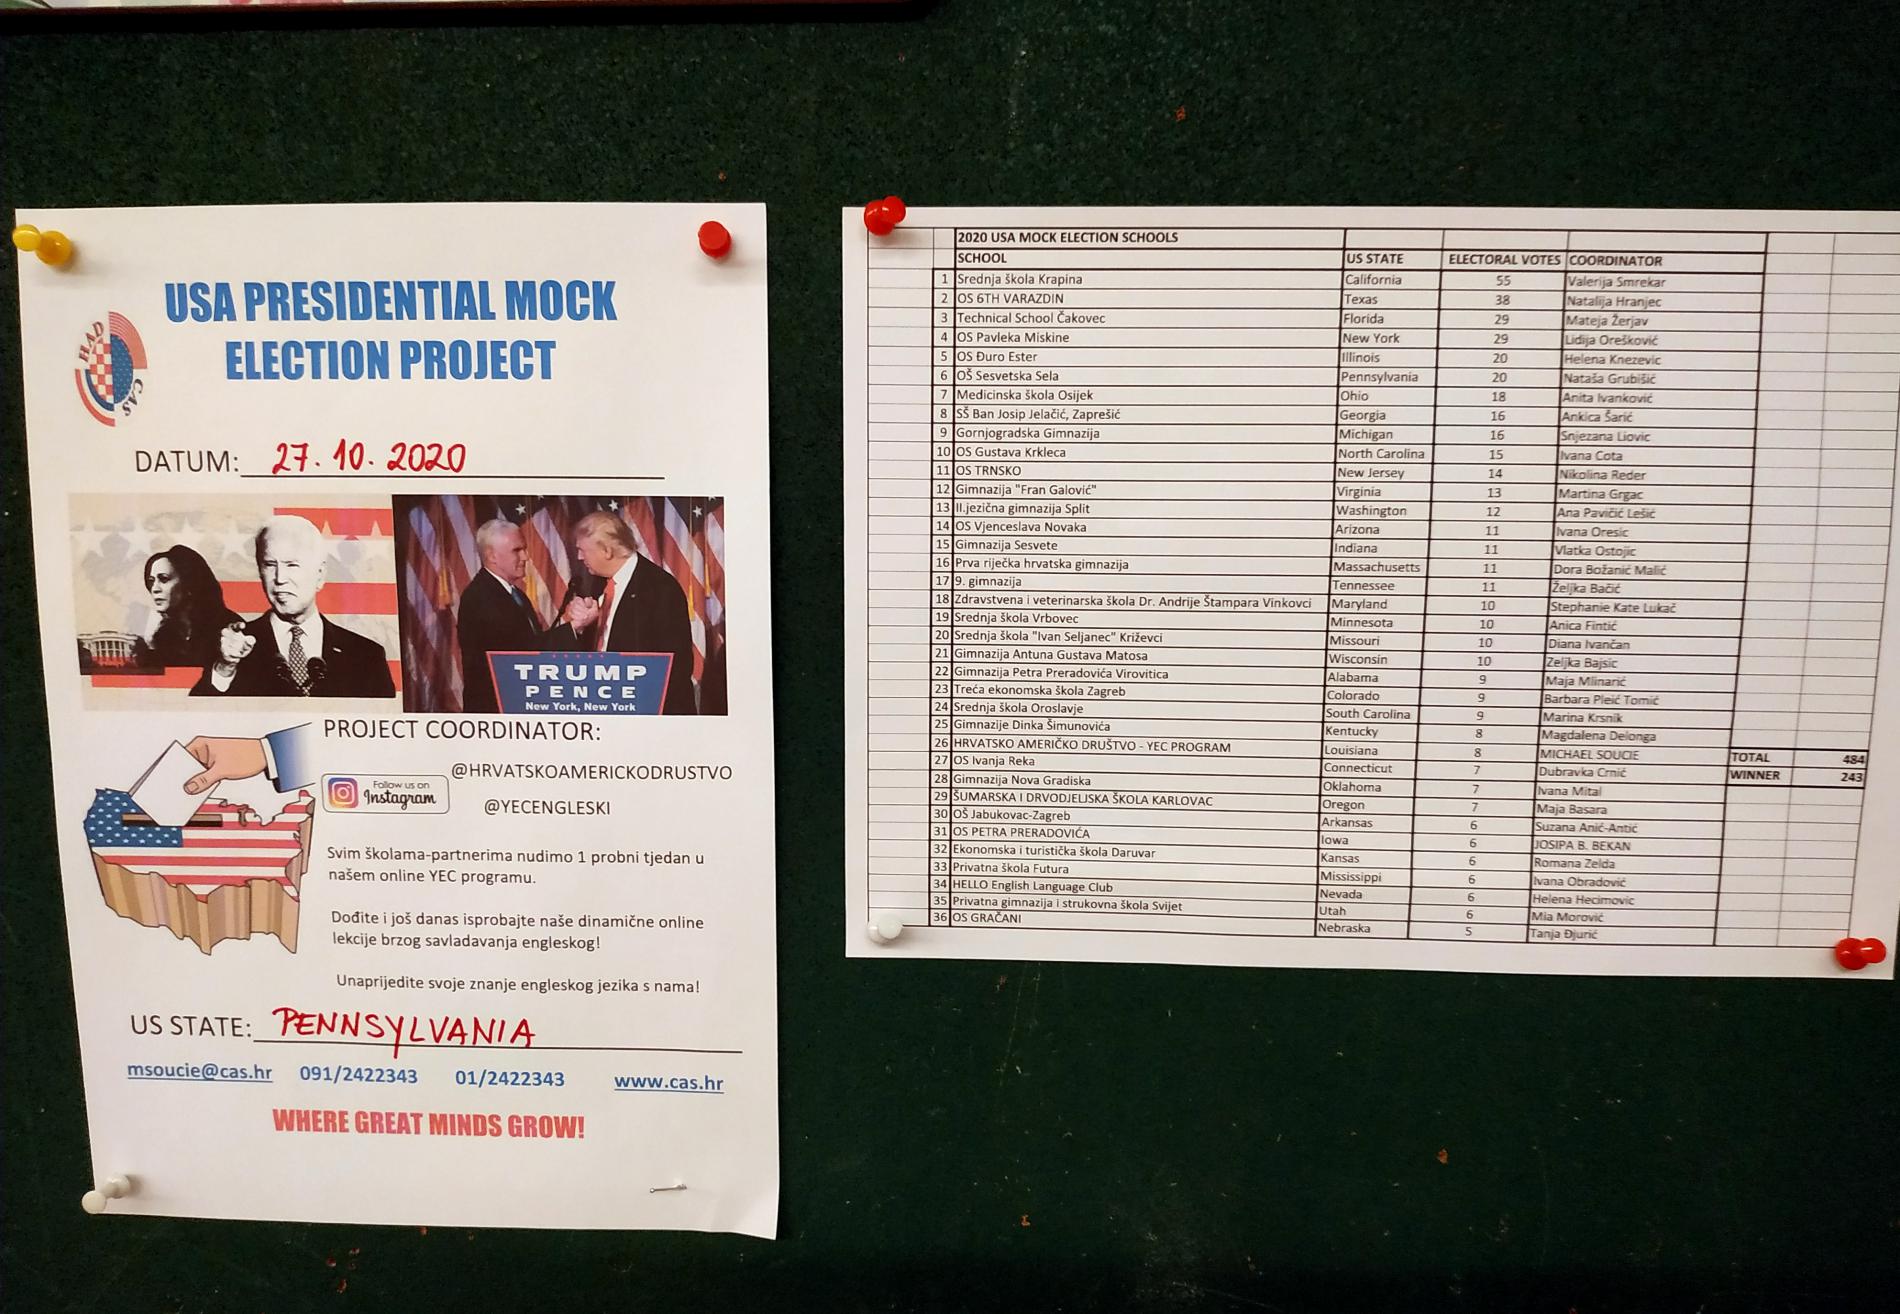 USA PRESIDENTIAL MOCK
ELECTION PROJECT
HAD
CAS
DATUM: 27.10.2020
TRUMP
PENCE
New York, New York
PROJECT COORDINATOR:
@HRVATSKOAMERICKODRUSTVO
Follow us on
Instagram
@YECENGLESKI
Svim školama-partnerima nudimo 1 probni tjedan u
našem online YEC programu.
Dođite i još danas isprobajte naše dinamične online
lekcije brzog savladavanja engleskog!
Unaprijedite svoje znanje engleskog jezika s nama!
US STATE: PENNSYLVANIA
msoucie@cas.hr 091/2422343 01/2422343 www.cas.hr
WHERE GREAT MINDS GROW!
2020 USA MOCK ELECTION SCHOOLS
SCHOOL US STATE ELECTORAL VOTES COORDINATOR
1 Srednja škola Krapina California 55 Valerija Smrekar
2 OS 6TH VARAZDIN Texas 38 Natalija Hranjec
3 Technical School Čakovec Florida 29 Mateja Žerjav
4 OS Pavleka Miskine New York 29 Lidija Orešković
5 OS Đuro Ester Illinois 20 Helena Knezevic
6 OŠ Sesvetska Sela Pennsylvania 20 Nataša Grubišić
7 Medicinska škola Osijek Ohio 18 Anita Ivanković
8 SŠ Ban Josip Jelačić, Zaprešić Georgia 16 Ankica Šarić
9 Gornjogradska Gimnazija Michigan 16 Snjezana Liovic
10 OS Gustava Krkleca North Carolina 15 Ivana Cota
11 OS TRNSKO New Jersey 14 Nikolina Reder
12 Gimnazija "Fran Galović" Virginia 13 Martina Grgac
13 II.jezična gimnazija Split Washington 12 Ana Pavičić Lešić
14 OS Vjenceslava Novaka Arizona 11 Ivana Oresic
15 Gimnazija Sesvete Indiana 11 Vlatka Ostojic
16 Prva riječka hrvatska gimnazija Massachusetts 11 Dora Božanić Malić
17 9. gimnazija Tennessee 11 Željka Bačić
18 Zdravstvena i veterinarska škola Dr. Andrije Štampara Vinkovci Maryland 10 Stephanie Kate Lukač
19 Srednja škola Vrbovec Minnesota 10 Anica Fintić
20 Srednja škola "Ivan Seljanec" Križevci Missouri 10 Diana Ivančan
21 Gimnazija Antuna Gustava Matosa Wisconsin 10 Zeljka Bajsic
22 Gimnazija Petra Preradovića Virovitica Alabama 9 Maja Mlinarić
23 Treća ekonomska škola Zagreb Colorado 9 Barbara Pleić Tomić
24 Srednja škola Oroslavje South Carolina 9 Marina Krsnik
25 Gimnazije Dinka Šimunovića Kentucky 8 Magdalena Delonga
26 HRVATSKO AMERIČKO DRUŠTVO - YEC PROGRAM Louisiana 8 MICHAEL SOUCIE TOTAL 484
27 OS Ivanja Reka Connecticut 7 Dubravka Crnić WINNER 243
28 Gimnazija Nova Gradiska Oklahoma 7 Ivana Mital
29 ŠUMARSKA I DRVODJELJSKA ŠKOLA KARLOVAC Oregon 7 Maja Basara
30 OŠ Jabukovac-Zagreb Arkansas 6 Suzana Anić-Antić
31 OS PETRA PRERADOVIĆA Iowa 6 JOSIPA B. BEKAN
32 Ekonomska i turistička škola Daruvar Kansas 6 Romana Zelda
33 Privatna škola Futura Mississippi 6 Ivana Obradović
34 HELLO English Language Club Nevada 6 Helena Hecimovic
35 Privatna gimnazija i strukovna škola Svijet Utah 6 Mia Morović
36 OS GRAČANI Nebraska 5 Tanja Đjurić